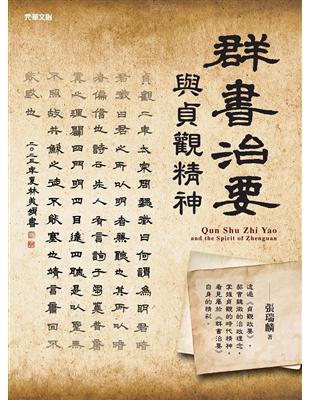 元華文創
群書治要
與貞觀精神
Qun Shu Zhi Yao
and the Spirit of Zhenguan
張瑞麟 著
透過《貞觀政要》，
契會魏徵的治政理念，
掌握貞觀的時代精神，
看見屬於《群書治要》
自身的精彩。
貞觀二年太宗問魏徵曰何謂為明君暗
君徵曰君之所以明者兼聽也其所以暗
者偏信也詩云先人有言詢于芻蕘昔唐
虞之理闢四門明四目達四聰是以聖無
不照故共鯀之徒不能塞也靖言庸回不
能惑也